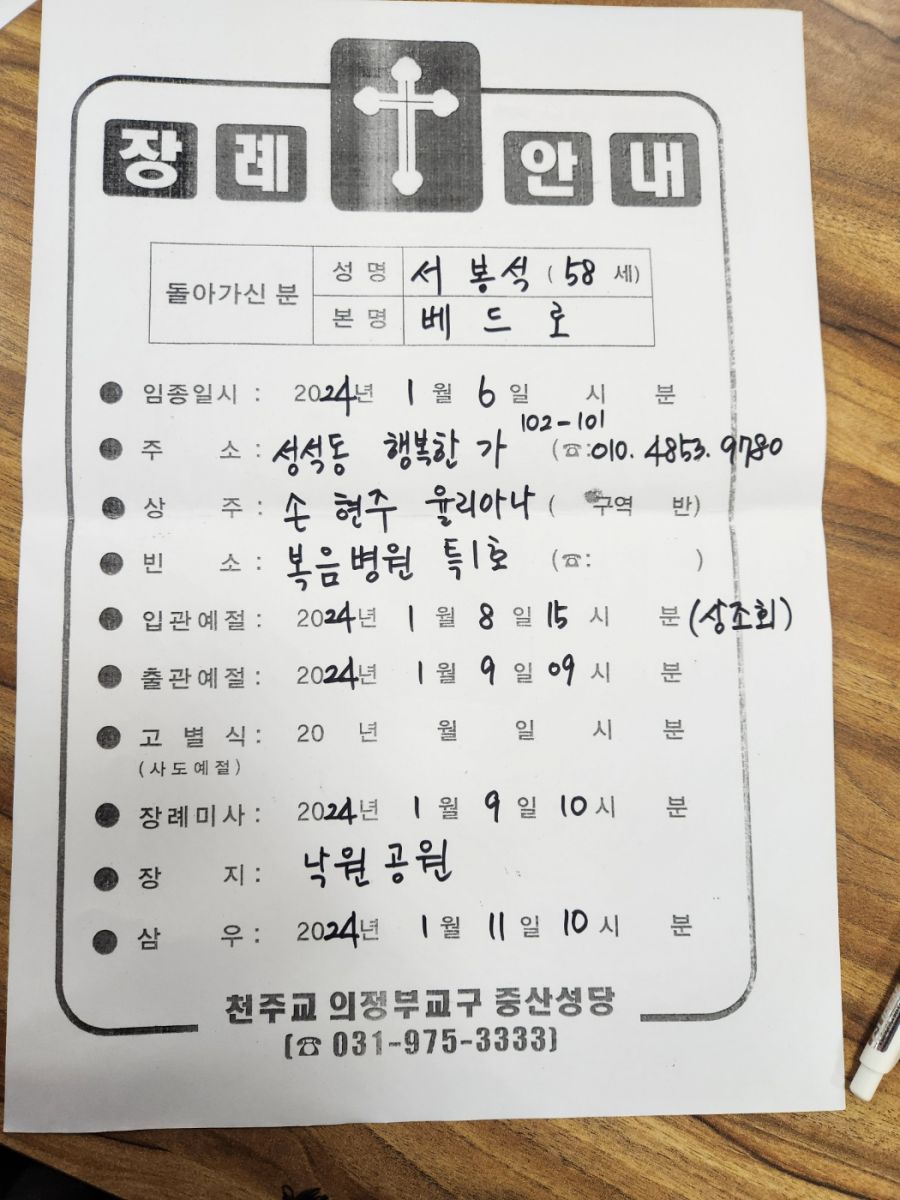 장례 안내
돌아가신 분 성명 서봉석 (58 세)
본명 베드로
● 임종일시 : 2024년 1월 6일 시 분
102-101
● 주 소 : 성석동 행복한 가 (☎:010. 4853. 9780
● 상 주 : 손현주 율리아나 ( 구역 반)
● 빈 소 : 복음병원 특1호 (☎: )
● 입관예절 : 2024년 1월 8일 15시 분 (상조회)
● 출관예절 : 2024년 1월 9일 09시 분
● 고별식 : 20 년 월 일 시 분
(사도예절)
● 장례미사 : 2024년 1월 9일 10시 분
● 장 지 : 낙원공원
● 삼 우 : 2024년 1월 11일 10시 분
천주교 의정부교구 중산성당
(☎ 031-975-3333)